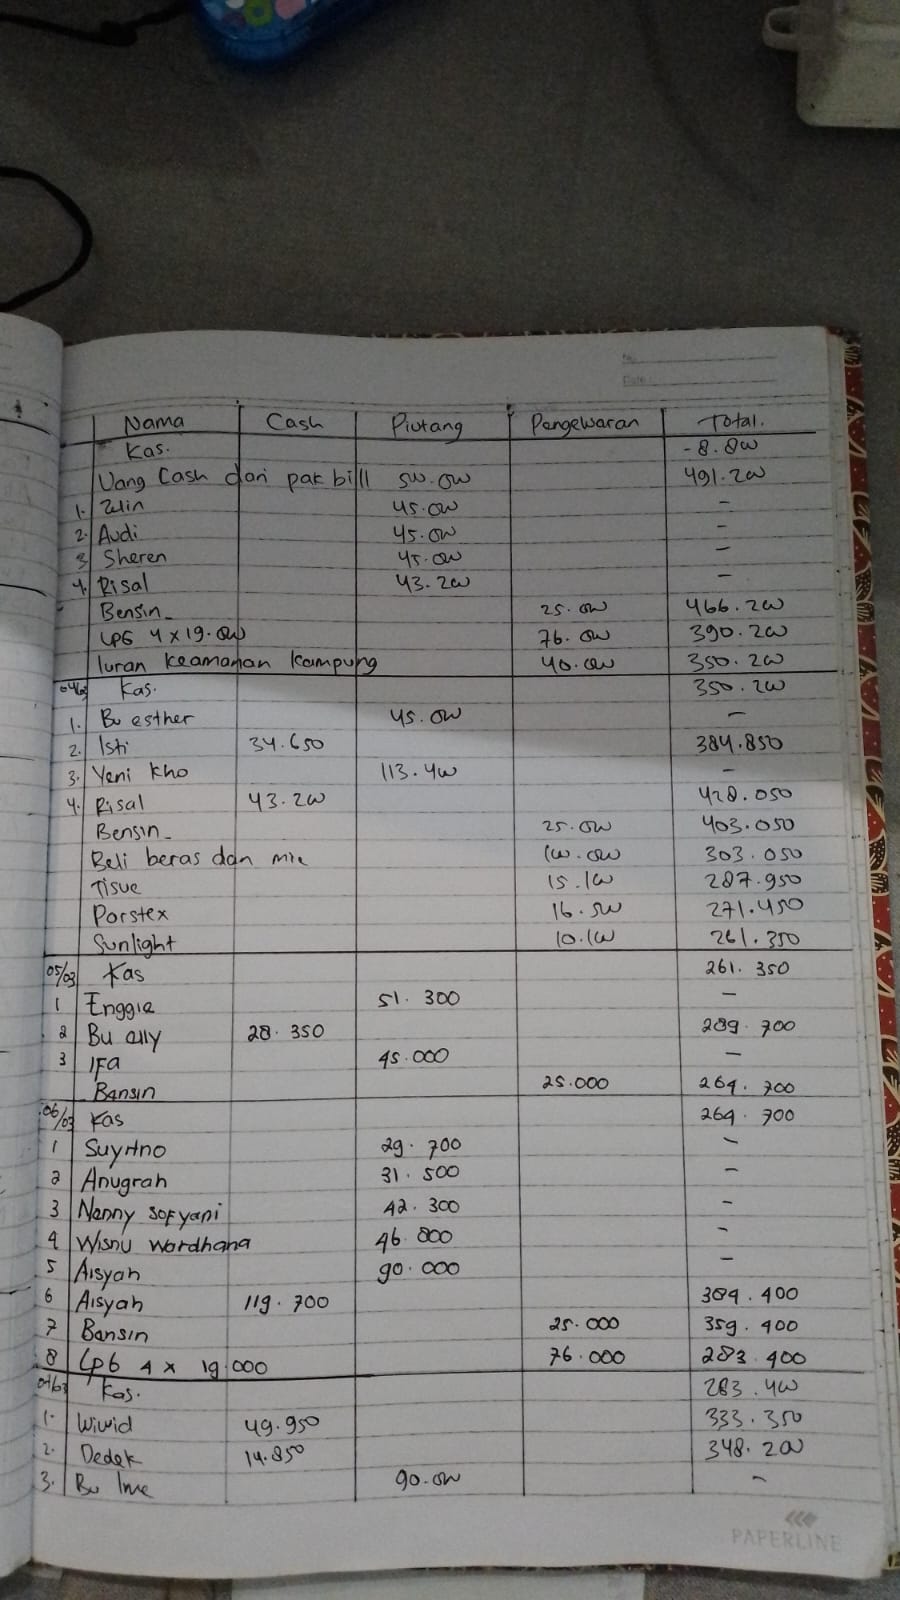 No.
Date :
Nama Cash Piutang Pengewaran Total.
Kas. -8.800
Uang Cash dari pak bill 500.000 491.200
1. Zulin 45.000 -
2. Audi 45.000 -
3 Sheren 45.000 -
4. Risal 43.200 -
Bensin 25.000 466.200
LPG 4 x 19.000 76.000 390.200
Iuran keamanan kampung 40.000 350.200
04/03 Kas. 350.200
1. Bu esther 45.000 -
2. Isti 34.650 384.850
3. Yeni kho 113.400 -
4. Risal 43.200 428.050
Bensin 25.000 403.050
Beli beras dan mie 100.000 303.050
Tisue 15.100 287.950
Porstex 16.500 271.450
Sunlight 10.100 261.350
05/03 Kas 261.350
1 Enggie 51.300 -
2 Bu ally 28.350 289.700
3 IFa 45.000 -
Bansin 25.000 264.700
06/03 Kas 264.700
1 Suyitno 29.700 -
2 Anugrah 31.500 -
3 Nenny Sofyani 42.300 -
4 Wisnu Wardhana 46.800 -
5 Aisyah 90.000 -
6 Aisyah 119.700 384.400
7 Bansin 25.000 359.400
8 Lp6 4 x 19.000 76.000 283.400
Kas. 283.400
1. Wiwid 49.950 333.350
2. Dedek 14.850 348.200
3. Bu Ime 90.000 -
PAPERLINE